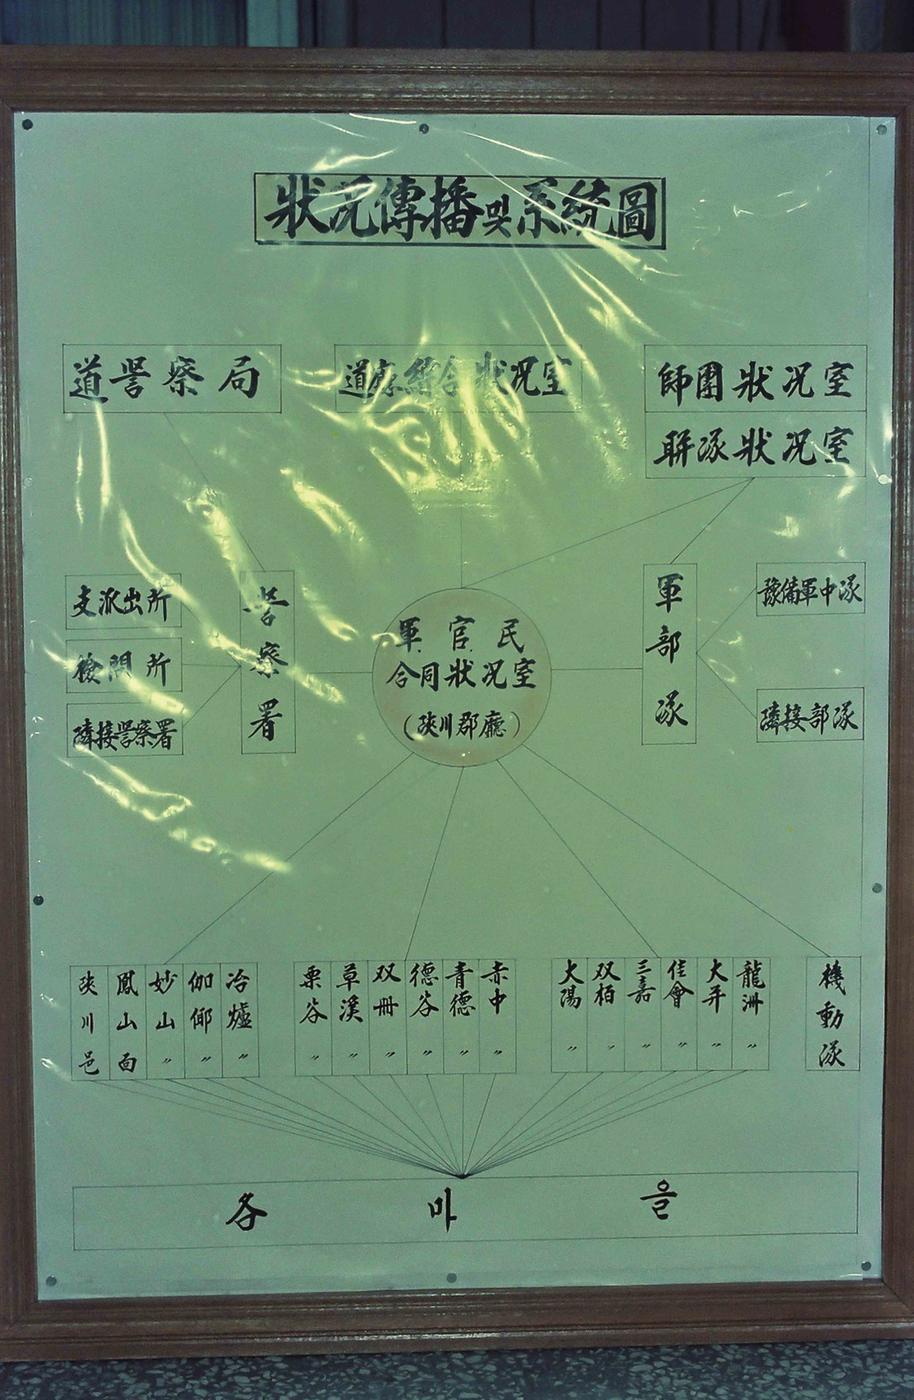 狀況傳播및系統圖
道警察局
道廳綜合狀況室
師團狀況室
聯隊狀況室
支派出所
檢問所
隣接警察署
警察署
軍官民
合同狀況室
(陜川郡廳)
軍部隊
豫備軍中隊
隣接部隊
陜川邑
鳳山面
妙山〃
伽倻〃
冶爐〃
栗谷〃
草溪〃
双冊〃
德谷〃
靑德〃
赤中〃
大陽〃
双栢〃
三嘉〃
佳會〃
大幷〃
龍洲〃
機動隊
各마을